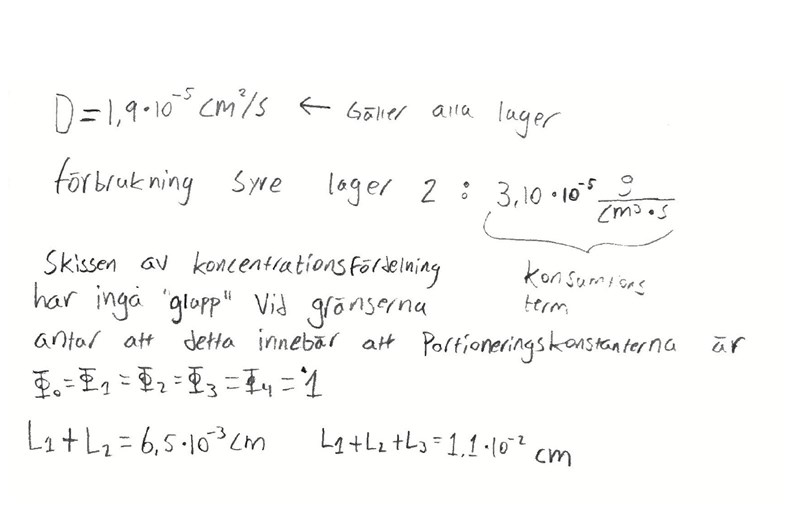 D = 1,9·10⁻⁵ cm²/s ← Gäller alla lager
förbrukning syre lager 2 : 3,10·10⁻⁵ g/(cm³·s)
Skissen av koncentrationsfördelning
konsumtions
har inga "glapp" vid gränserna
term
antar att detta innebär att Portioneringskonstanterna är
Φ₀ = Φ₁ = Φ₂ = Φ₃ = Φ₄ = 1
L₁ + L₂ = 6,5·10⁻³ cm L₁ + L₂ + L₃ = 1,1·10⁻² cm